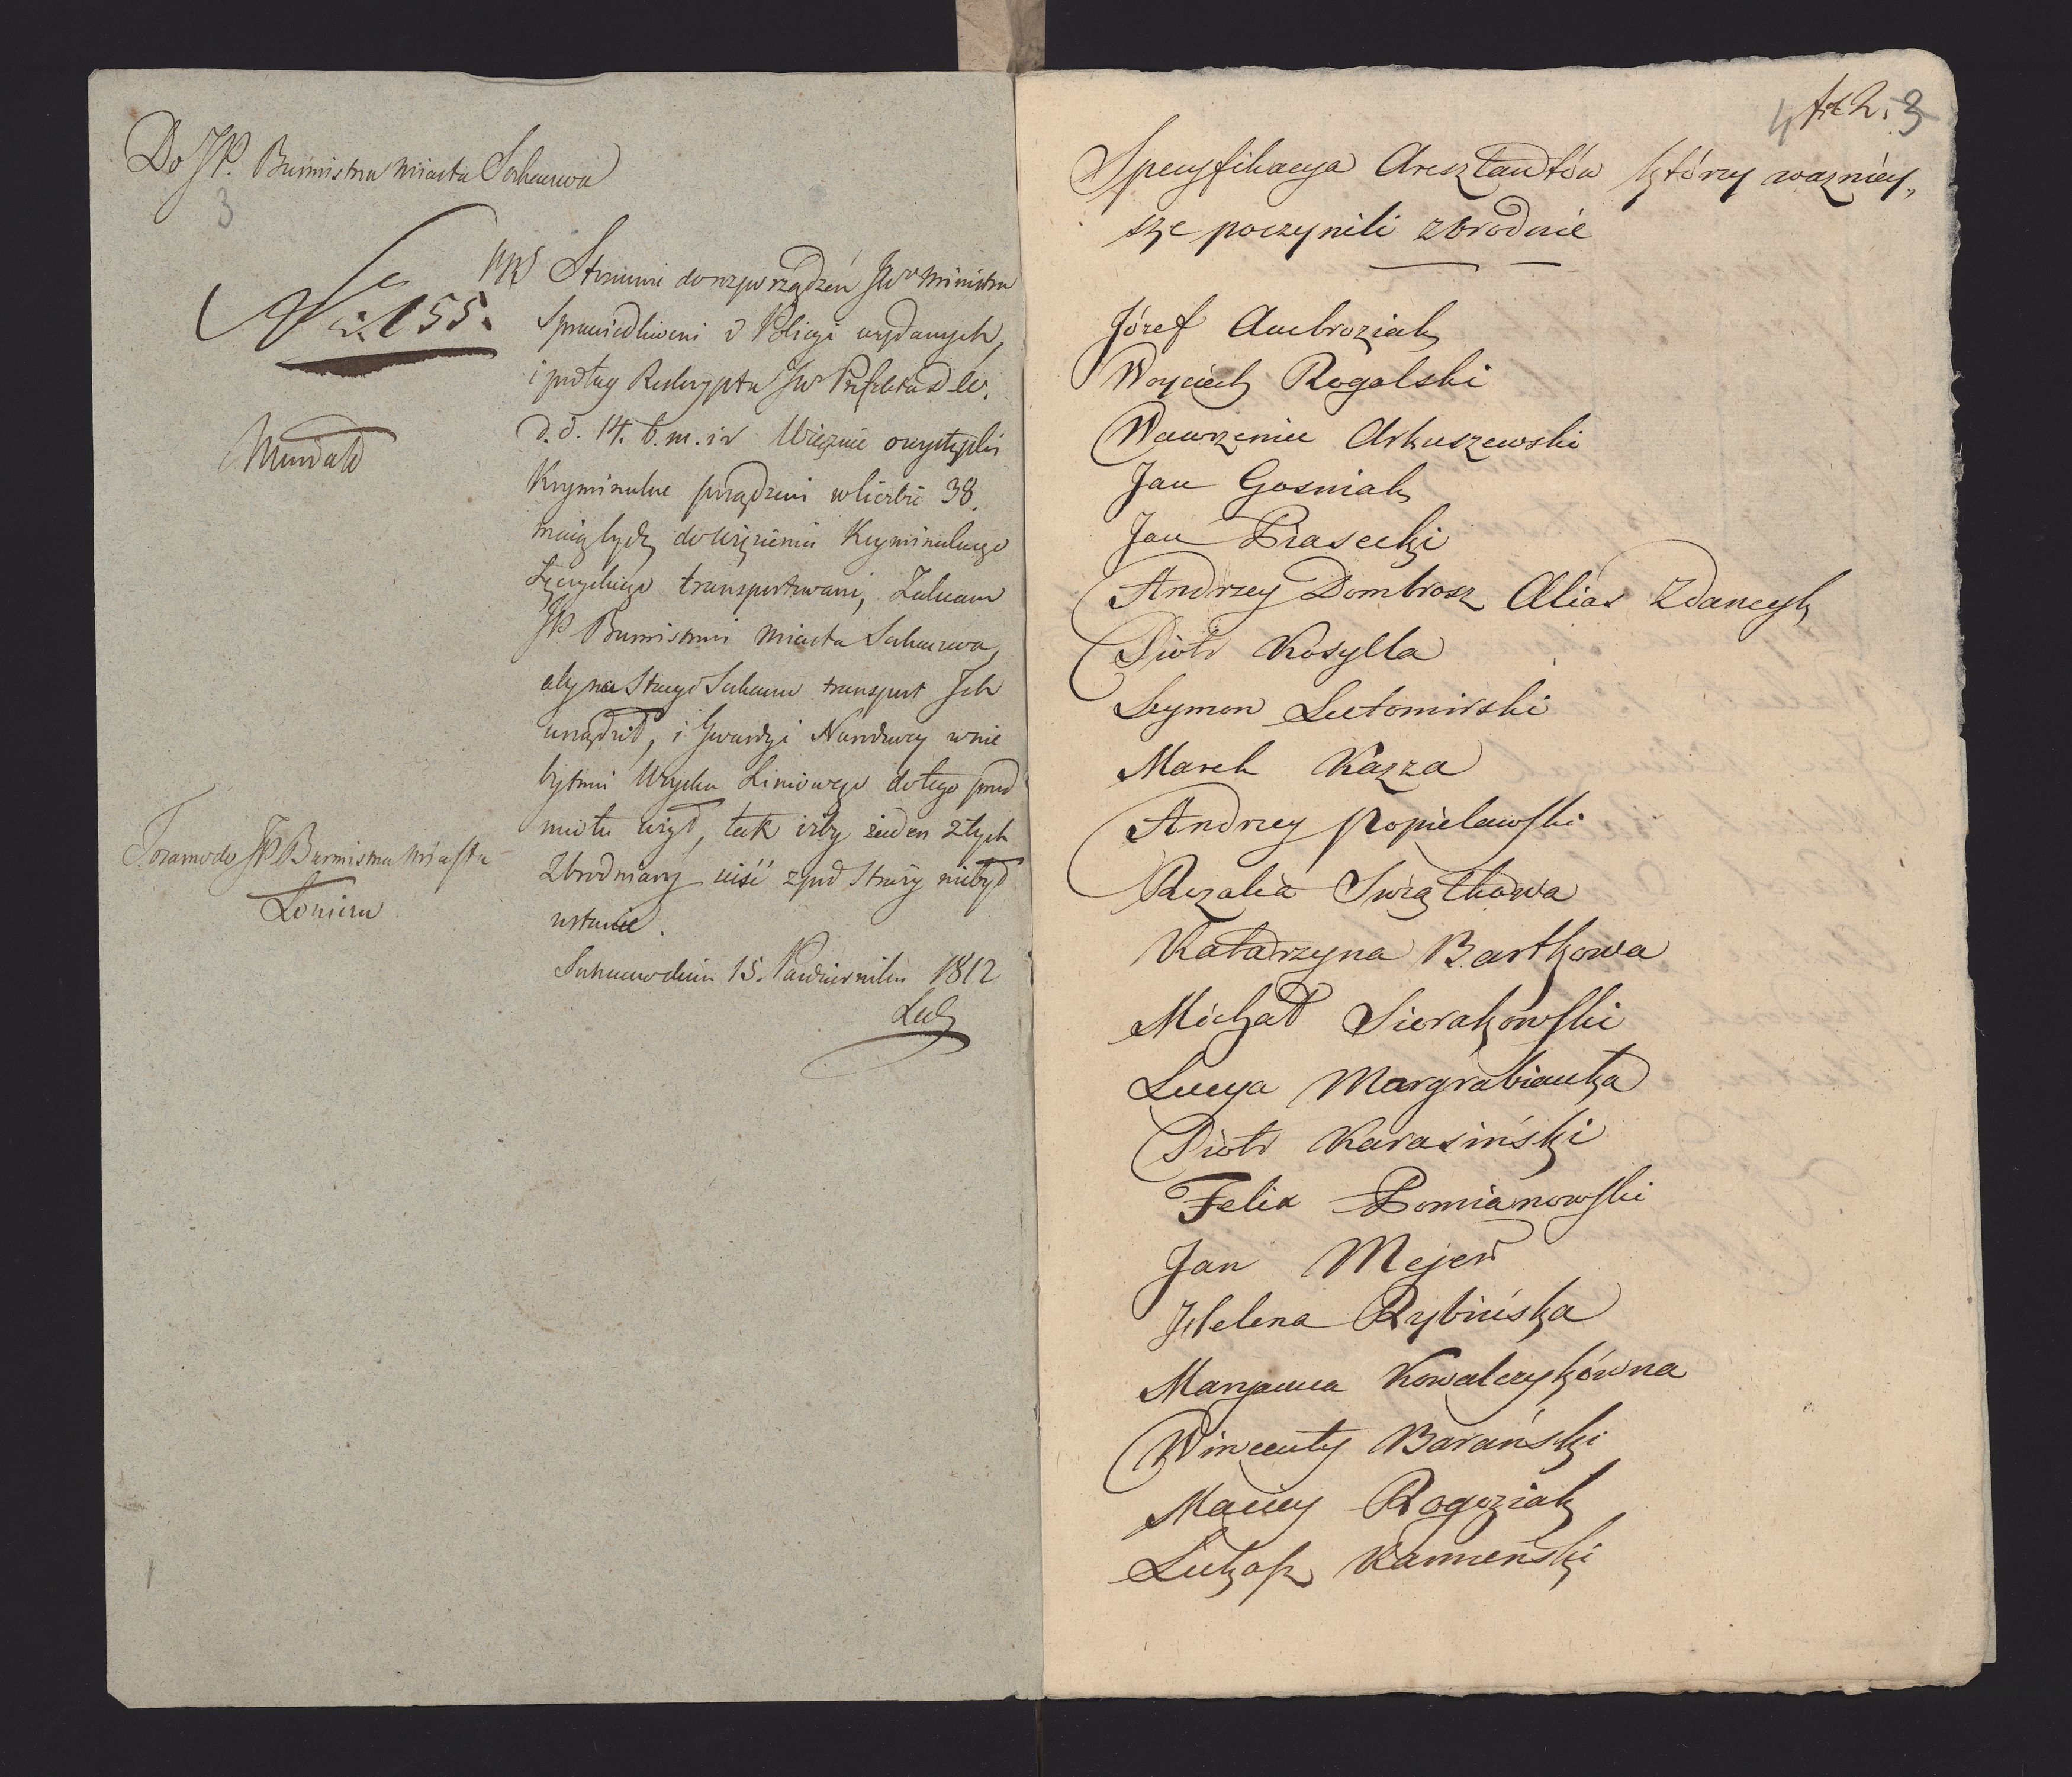 Do JP. Burmistra Miasta Sochaczewa
3
No 155.
Mundałt
Stosownie do rozporządzeń JW Ministra
Sprawiedliwości i Policyi wydanych,
i podług Reskryptu JW Prefekta
d. d. 14. b. m. i r Więźnie o występki
Kryminalne posądzeni w liczbie 38.
maią bydź do więzienia Kryminalnego
Łęczyckiego transportowani, Zalecam
JP Burmistrzowi Miasta Sochaczewa,
aby na Stacyi Sochaczew transport Ich
urządził, i Gwardyi Narodowey w nie
bytności Woyska Liniowego do tego przed
miotu użył, tak iżby żaden z tych
Zbrodniarzy uiść z pod Straży nie był
w stanie.
Sochaczew dnia 15. Październiku 1812
Lech
To samo do JP Burmistrza Miasta
Łowicza
4 ad 2. 3
Specyfikacya Aresztantów którzy waznièy„
sze poczynili zbrodnie
Józef Ambroziak
Woyciech Rogalski
Wawrzeniec Arkuszewski
Jan Gosniak
Jan Piasecki
Andrzey Dombrosz Alias Zdancyk
Piotr Kosylla
Szymon Lutomirski
Marek Kazza
Andrzey Popielawski
Rozalia Swiątkowa
Katarzyna Bartkowa
Michał Sierakowski
Lucya Margrabianka
Piotr Karasiński
Felix Pomianowski
Jan Mejer
Helena Rybińska
Maryanna Kowalczykówna
Wincenty Barański
Maciey Rogoziak
Lukasz Kamieński